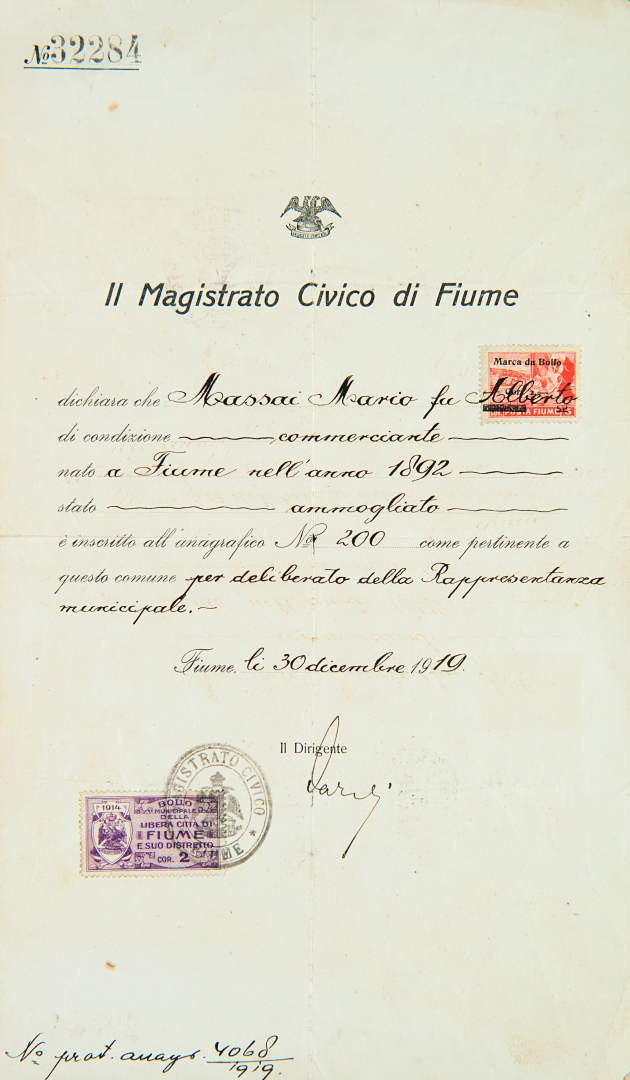 No 32284
Il Magistrato Civico di Fiume
Marca da Bollo
dichiara che Massai Mario fu Alberto
FIUME
di condizione commerciante
nato a Fiume nell'anno 1892
stato ammogliato
è inscritto all'anagrafico No 200 come pertinente a
questo comune per deliberato della Rappresentanza
municipale.
Fiume, li 30 dicembre 1919.
Il Dirigente
MAGISTRATO CIVICO
FIUME
1914
BOLLO
MUNICIPALE
DELLA
LIBERA CITTÀ DI
FIUME
E SUO DISTRETTO
COR. 2
No prot. anagr. 4068
1919.